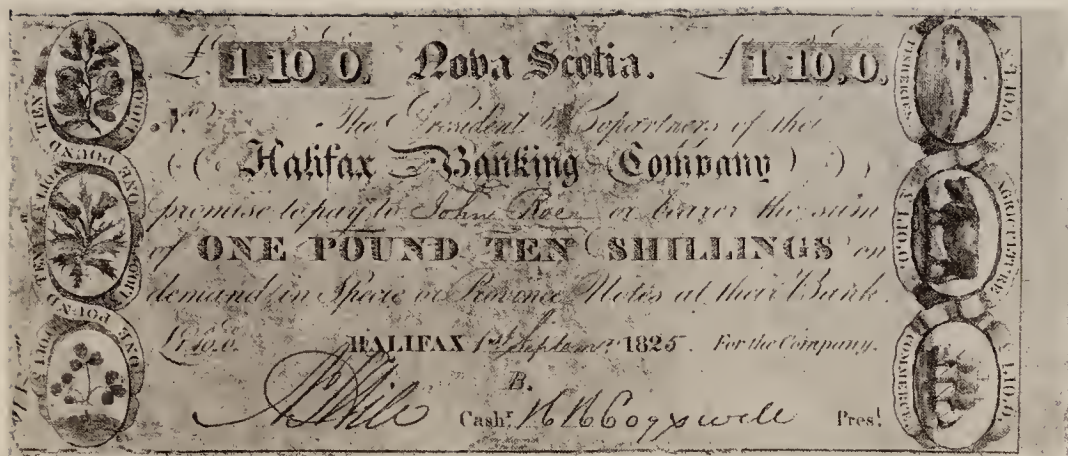 £ 1.10.0. Nova Scotia. £ 1.10.0.
No. The President & Copartners of the
Halifax Banking Company
promise to pay to John Roer or bearer the sum
of ONE POUND TEN SHILLINGS on
demand in Specie or Province Notes at their Bank.
£1.10.0. HALIFAX 1st September 1825. For the Company.
B.
Cashr. H H Cogswell Prest.
ONE POUND TEN
ONE POUND TEN
ONE POUND
FISHERIES £1.10.0.
AGRICULTURE £1.10.0.
COMMERCE £1.10.0.